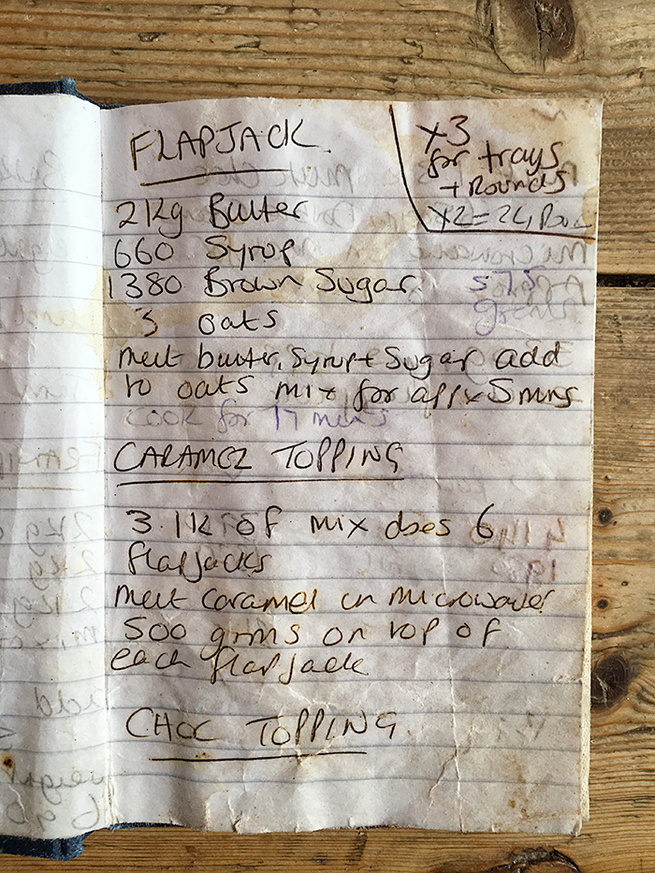 FLAPJACK
x3
for trays
+ Rounds
x2 = 24
2Kg Butter
660 Syrop
1380 Brown Sugar.
3 oats
melt butter, Syrup + Sugar add
to oats mix for appx 5 mins
cook for 17 mins
CARAMEL TOPPING
3.1K of mix does 6
flapjacks
melt caramel in microwave
500 grms on top of
each flapjack
CHOC TOPPING.